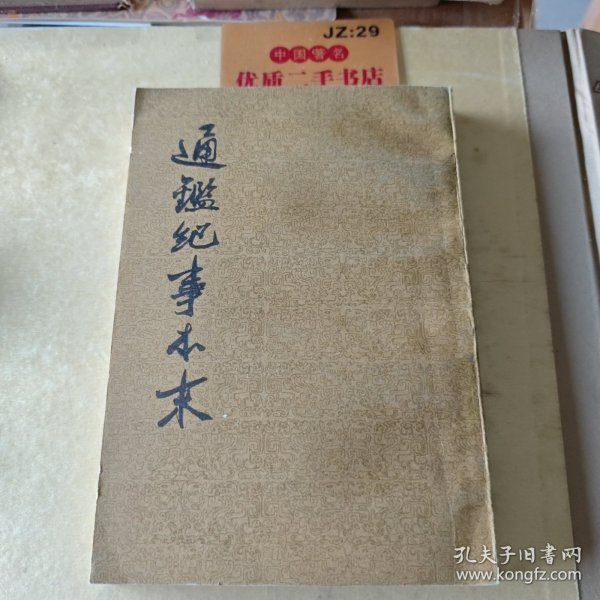 JZ:29
中国著名
优质二手书店
通鑑纪事本末
孔夫子旧书网
www.kongfz.com